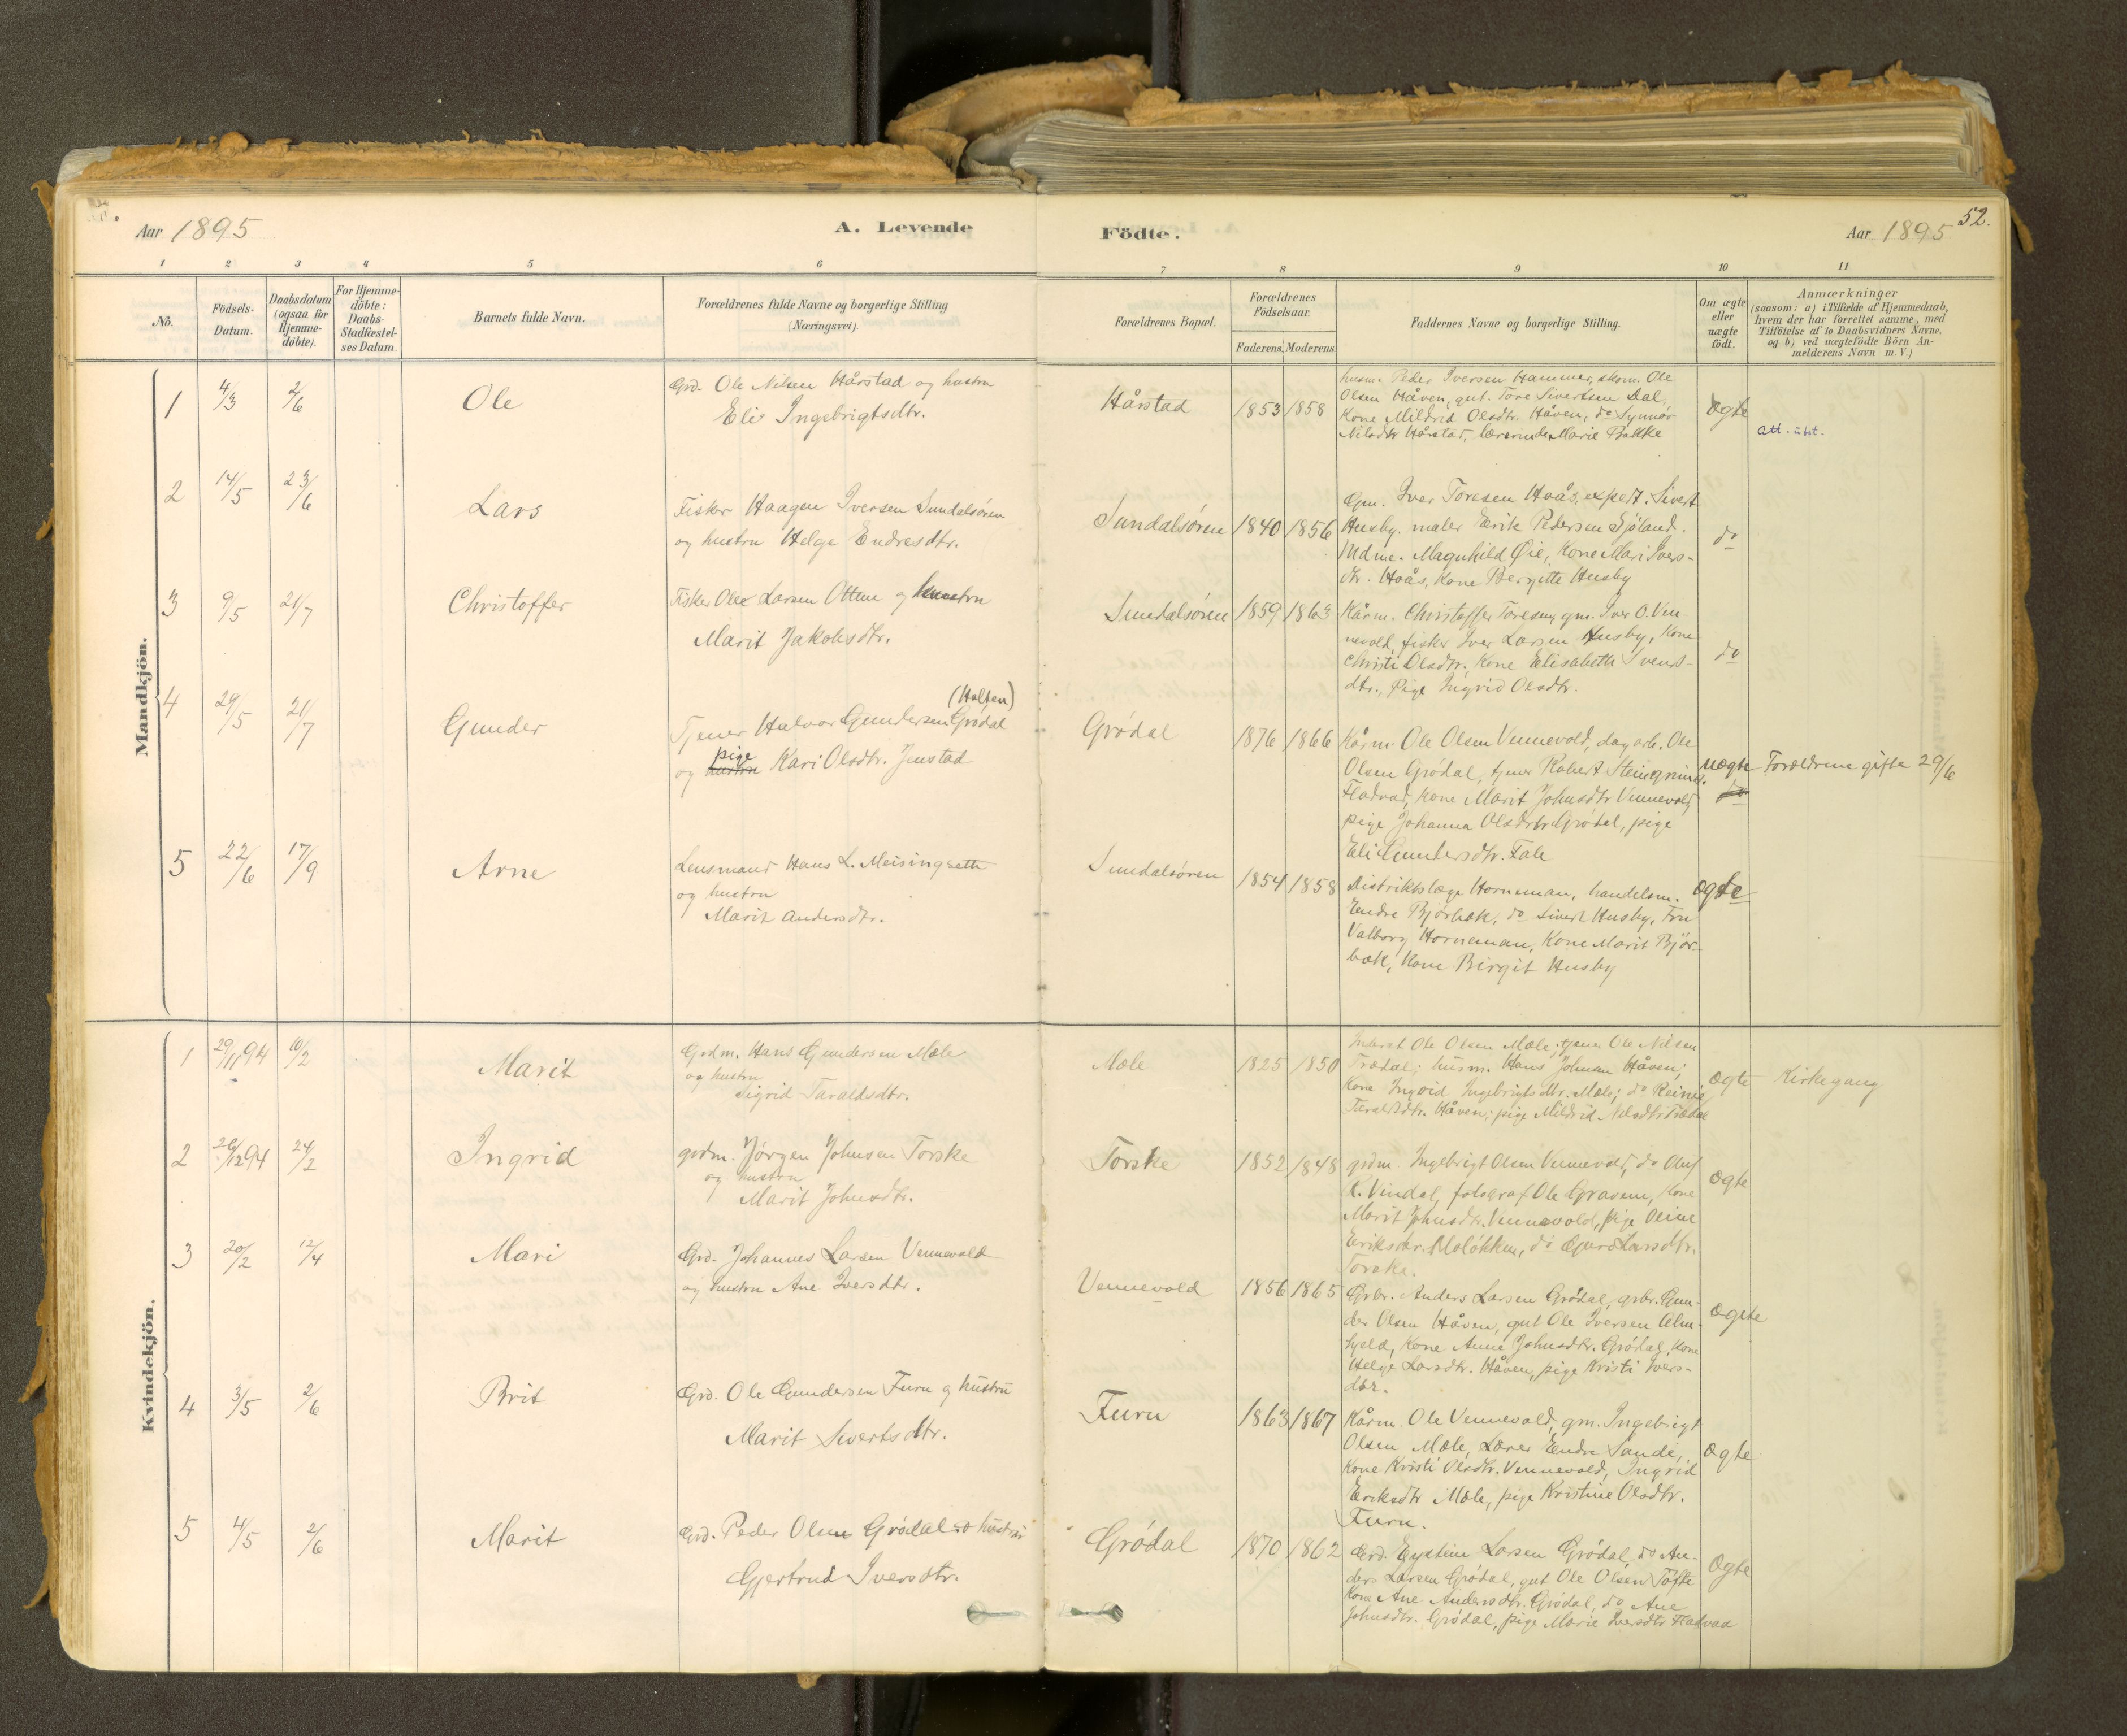 Aar 1895
A. Levende
Födte.
Aar 1895
52.
1 2 3 4 5 6 7 8 9 10 11
No.
Födsels-
Datum.
Daabsdatum
(ogsaa for
Hjemme-
döbte).
For Hjemme-
döbte:
Daabs-
Stadfæstel-
ses Datum.
Barnets fulde Navn.
Forældrenes fulde Navne og borgerlige Stilling
(Næringsvei).
Forældrenes Bopæl.
Forældrenes
Födselsaar.
Faderens. Moderens.
Faddernes Navne og borgerlige Stilling.
Om ægte
eller
uægte
födt.
Anmærkninger
(saasom: a) i Tilfælde af Hjemmedaab,
hvem der har forrettet samme, med
Tilföielse af to Daabsvidners Navne,
og b) ved uægtefödte Börn An-
melderens Navn m. V.)
Mandkjön.
1 4/3 2/6 Ole
Grd. Ole Nilsen Hårstad og hustru
Eli Ingebrigtsdtr.
Hårstad 1853 1858
husm. Peder Iversen Hammer, skom. Ole
Olsen Håven, gut. Tore Sivertsen Dal,
Kone Mildrid Olsdtr. Håven, do Synnøv
Nilsdtr Hårstad, lærerinde Marie Bakke
ægte
att. utst.
2 14/5 23/6 Lars
Fisker Haagen Iversen Sundalsøren
og hustru Helge Endresdtr.
Sundalsøren 1840 1856
Gm. Iver Toresen Hoås, exped. Sivert
Husby. maler Erik Pedersen Sjøland.
Mdme. Magnhild Øie, Kone Mari Ivers-
dtr. Hoås, Kone Bergitte Husby
do
3 9/5 21/7 Christoffer
Fisker Ole Larsen Ottem og hustru
Marit Jakobsdtr.
Sundalsøren 1859 1863
Kårm. Christoffer Toresen, gm. Iver O. Ven-
nevold, fisker Iver Larsen Husby, Kone
Christi Olsdtr. Kone Elisabeth Svends-
dtr., Pige Ingrid Olsdtr.
do
4 29/5 21/7 Gunder
(Halsen)
Tjener Halvor Gundersen Grødal
pige
og hustru Kari Olsdtr. Jenstad
Grødal 1876 1866
Kårm. Ole Olsen Vennevold, dagarb. Ole
Olsen Grødal, tjener Robert Steingrims.
Fladvad, Kone Marit Johnsdtr Vennevold,
pige Johanna Olsdtr Grødal, pige
Eli Gundersdtr. Fale
uægte
do
Forældrene gifte 29/6
5 22/6 17/9 Arne
Lensmand Hans L. Meisingseth
og hustru
Marit Andersdtr.
Sundalsøren 1854 1858
Distriktslæge Horneman, handelsm.
Endre Bjørbæk, do Sivert Husby, Fru
Valborg Horneman, Kone Marit Bjør-
bæk, Kone Birgit Husby
ægte
Kvindekjön.
1 29/11 94 10/2 Marit
Grdm. Hans Gundersen Mæle
og hustru
Sigrid Taraldsdtr.
Mæle 1825 1850
Ole Olsen Mæle; tjener Ole Nilsen
Trædal; husm. Hans Johnsen Håven;
Kone Ingrid Ingebrigtsdtr. Mæle; do Reinei
Taraldsdtr. Håven; pige Mildrid Nilsdtr Trædal
ægte
Kirkegang
2 26/12 94 24/2 Ingrid
grdm. Jørgen Johnsen Torske
og hustru
Marit Johnsdtr.
Torske 1852 1848
grdm. Ingebrigt Olsen Vennevold, do Oluf
K. Vindal, fotograf Ole Gravem, Kone
Marit Johnsdtr. Vennevold, pige Oline
Eriksdtr. Moløkken, do Guro Larsdtr.
Torske.
ægte
3 20/2 12/4 Mari
Grd. Johannes Larsen Vennevold
og hustru Ane Iversdtr.
Vennevold 1856 1865
Grbr. Anders Larsen Grødal, grbr. Gun-
der Olsen Håven, gut Ole Iversen Alm-
hjeld, Kone Anne Johnsdtr. Grødal, Kone
Helge Larsdtr. Håven, pige Kristi Ivers-
dtr.
ægte
4 3/5 2/6 Brit
Grd. Ole Gundersen Furu og hustru
Marit Sivertsdtr.
Furu 1863 1867
Kårm. Ole Vennevold, gm. Ingebrigt
Olsen Mæle, Lærer Endre Sande,
Kone Kristi Olsdtr. Vennevold, Ingrid
Eriksdtr Mæle, pige Kristine Olsdtr.
Furu.
ægte
5 4/5 2/6 Marit
Grd. Peder Olsen Grødal o hustru
Gjertrud Iversdtr.
Grødal 1870 1862
Grd. Eystein Larsen Grødal, do An-
ders Larsen Grødal, gut Ole Olsen Tofte
Kone Ane Andersdtr. Grødal, do Ane
Johnsdtr. Grødal, pige Marie Iversdtr Fladvad
ægte